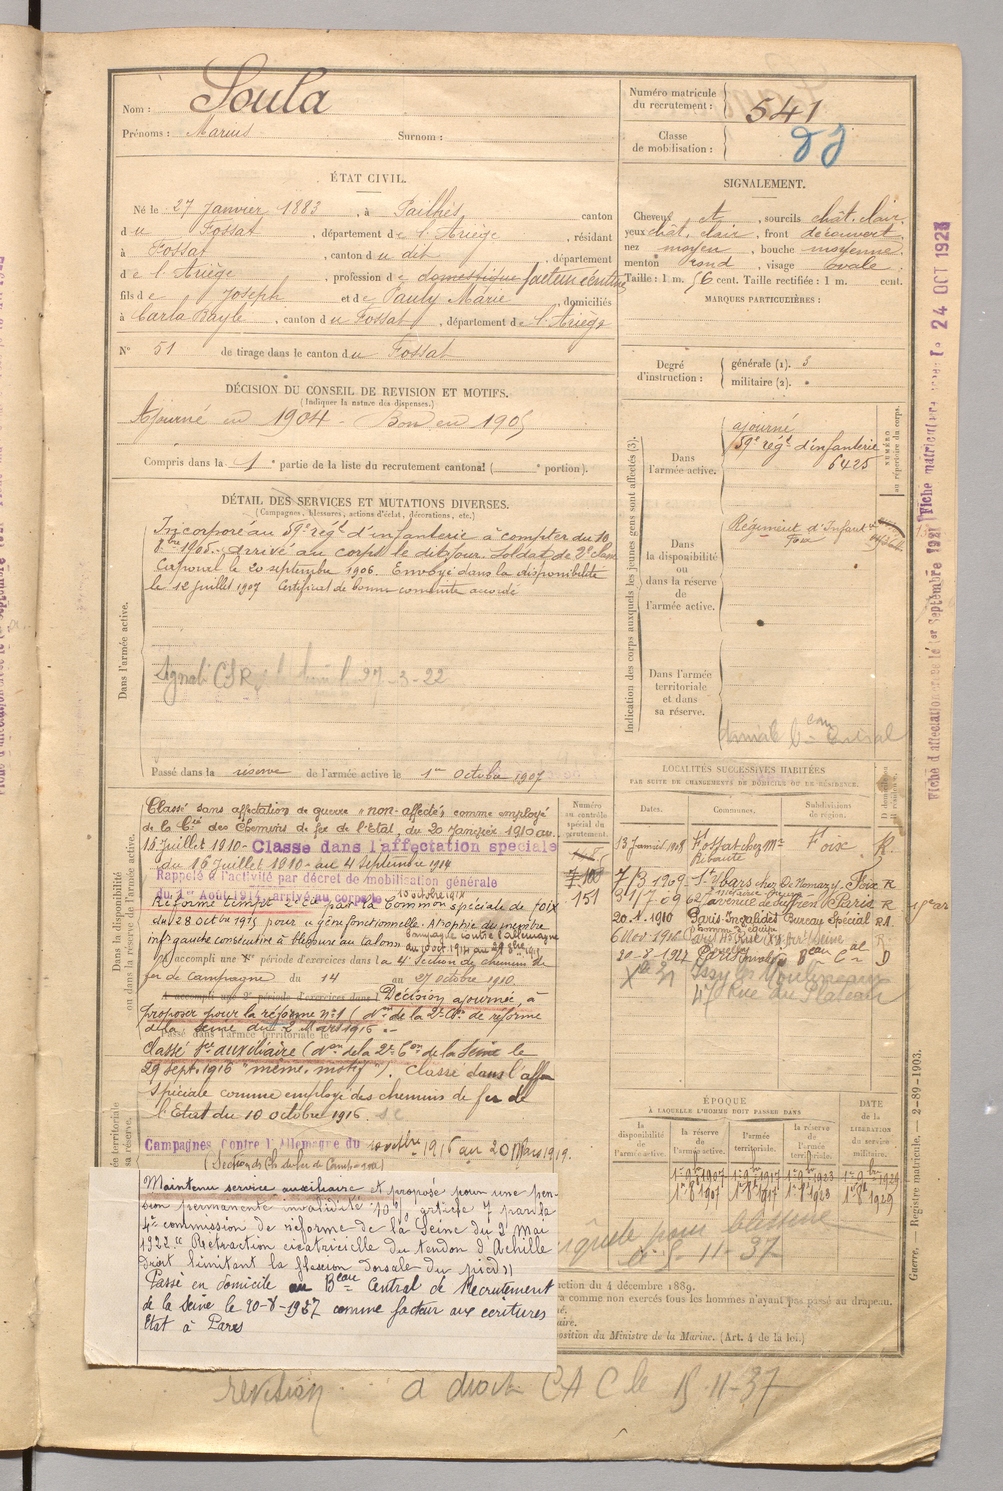 Nom : Soula
Prénoms : Marius Surnom :
Numéro matricule du recrutement : 541
Classe de mobilisation :
ÉTAT CIVIL.
Né le 27 Janvier 1883, à Pailhès canton
du Fossat, département de l'Ariège, résidant
à Fossat, canton du dit, département
de l'Ariège, profession de domestique facteur
fils de Joseph et de Pauly Marie, domiciliés
à Carla Bayle, canton du Fossat, département de l'Ariège
N° 51 de tirage dans le canton du Fossat
SIGNALEMENT.
Cheveux ct, sourcils chât. clair.
yeux chât. clair, front découvert
nez moyen, bouche moyenne
menton rond, visage ovale.
Taille : 1 m. 56 cent. Taille rectifiée : 1 m. cent.
MARQUES PARTICULIÈRES :
Degré d'instruction : générale (1). 3
militaire (2).
DÉCISION DU CONSEIL DE REVISION ET MOTIFS.
(Indiquer la nature des dispenses.)
Ajourné en 1904 - Bon en 1905
Compris dans la 1e partie de la liste du recrutement cantonal ( e portion).
DÉTAIL DES SERVICES ET MUTATIONS DIVERSES.
(Campagnes, blessures, actions d'éclat, décorations, etc.)
Dans l'armée active.
Incorporé au 59e régt d'infanterie à compter du 10
8bre 1905. arrivé au corps le dit jour. Soldat de 2e classe
Caporal le 20 septembre 1906. Envoyé dans la disponibilité
le 12 juillet 1907 Certificat de bonne conduite accordé
27-3-22
Passé dans la réserve de l'armée active le 1er Octobre 1907
Indication des corps auxquels les jeunes gens sont affectés (3).
NUMÉRO au répertoire du corps.
Dans l'armée active.
ajourné
59e régt d'infanterie
6425
Dans la disponibilité ou dans la réserve de l'armée active.
Régiment d'Infanterie
Foix
Dans l'armée territoriale et dans sa réserve.
LOCALITÉS SUCCESSIVES HABITÉES
PAR SUITE DE CHANGEMENTS DE DOMICILE OU DE RÉSIDENCE.
Dates. Communes. Subdivisions de région. D domicile R résidence.
Fossat chez Mr Foix R.
Ribaute
7/3 1909 St Ybars chez Foix R
31/7 09 62 avenue de Suffren Paris R
20.1.1910 Paris Invalides Bureau Spécial
20-8-1921 D
Issy les Moulineaux
47 Rue du Plateau
Numéro au contrôle spécial du recrutement.
151
Dans la disponibilité ou dans la réserve de l'armée active.
Classé sans affectation de guerre "non-affecté" comme employé
de la Cie des Chemins de fer de l'Etat, du 20 janvier 1910 au
16 Juillet 1910 - Classé dans l'affectation spéciale
du 16 Juillet 1910 - au 4 Septembre 1914
Rappelé à l'activité par décret de mobilisation générale
du 1er Août 1914, arrivé au corps le
Réformé par la Common spéciale de Foix
du 28 octbre 1915 pour gêne fonctionnelle. Atrophie du membre
infr gauche consécutive à blessure au talon
campagne contre l'allemagne
A accompli une 1e période d'exercices dans la 4e Section de chemins de
fer de campagne du 14 au 27 octobre 1910
A accompli une 2e période d'exercices dans l
Décision ajournée, à
proposer pour la réforme n°1 (don de la 2e Con de réforme
de la Seine du 2 Mars 1916 .-
Passé dans l'armée territoriale le
Classé Sce auxiliaire (don de la 2e Con de la Seine le
29 sept. 1916 "même motif"). Classé dans l'affon
spéciale comme employé des chemins de fer de
l'Etat du 10 octobre 1916.
Campagnes Contre l'Allemagne du 10 octbre 1916 au 20 Mars 1919.
Maintenu service auxiliaire et proposé pour une pen-
sion permanente invalidité 10% article 7 par la
4e commission de réforme de la Seine du 2 Mai
1922. "Rétraction cicatricielle du tendon d'Achille
droit limitant la flexion dorsale du pied"
Passé en domicile au Beau Central de Recrutement
de la Seine le 20-8-1937 comme facteur aux écritures
Etat à Paris
ÉPOQUE
À LAQUELLE L'HOMME DOIT PASSER DANS
DATE de la LIBÉRATION du service militaire.
la disponibilité de l'armée active. la réserve de l'armée active. l'armée territoriale. la réserve de l'armée territoriale.
1er 8bre 1907 1er 8bre 1917 1er 8bre 1923 1er 8bre 1929
pour blessure
11-37
ction du 4 décembre 1889.
a comme non exercés tous les hommes n'ayant pas passé au drapeau.
osition du Ministre de la Marine. (Art. 4 de la loi.)
Guerre. — Registre matricule. — 2-89-1903.
Fiche d'affectation avec le 1er Septembre 1921
Fiche matricule
24 OCT 1928
revision a droit CAC le 15-11-37